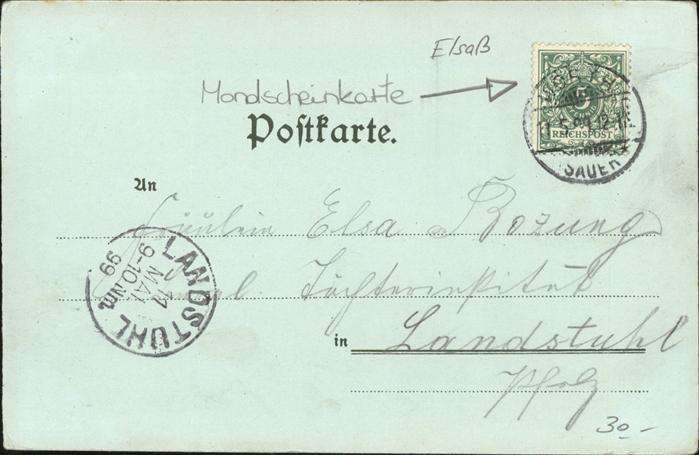 Elsaß
Mondscheinkarte
Postkarte.
5
REICHSPOST
SAUER
An
Fräulein Elsa Bozung
Töchterinstitut
in Landstuhl
Pfalz
LANDSTUHL
11
MAI
9-10 Nm.
99
30.-